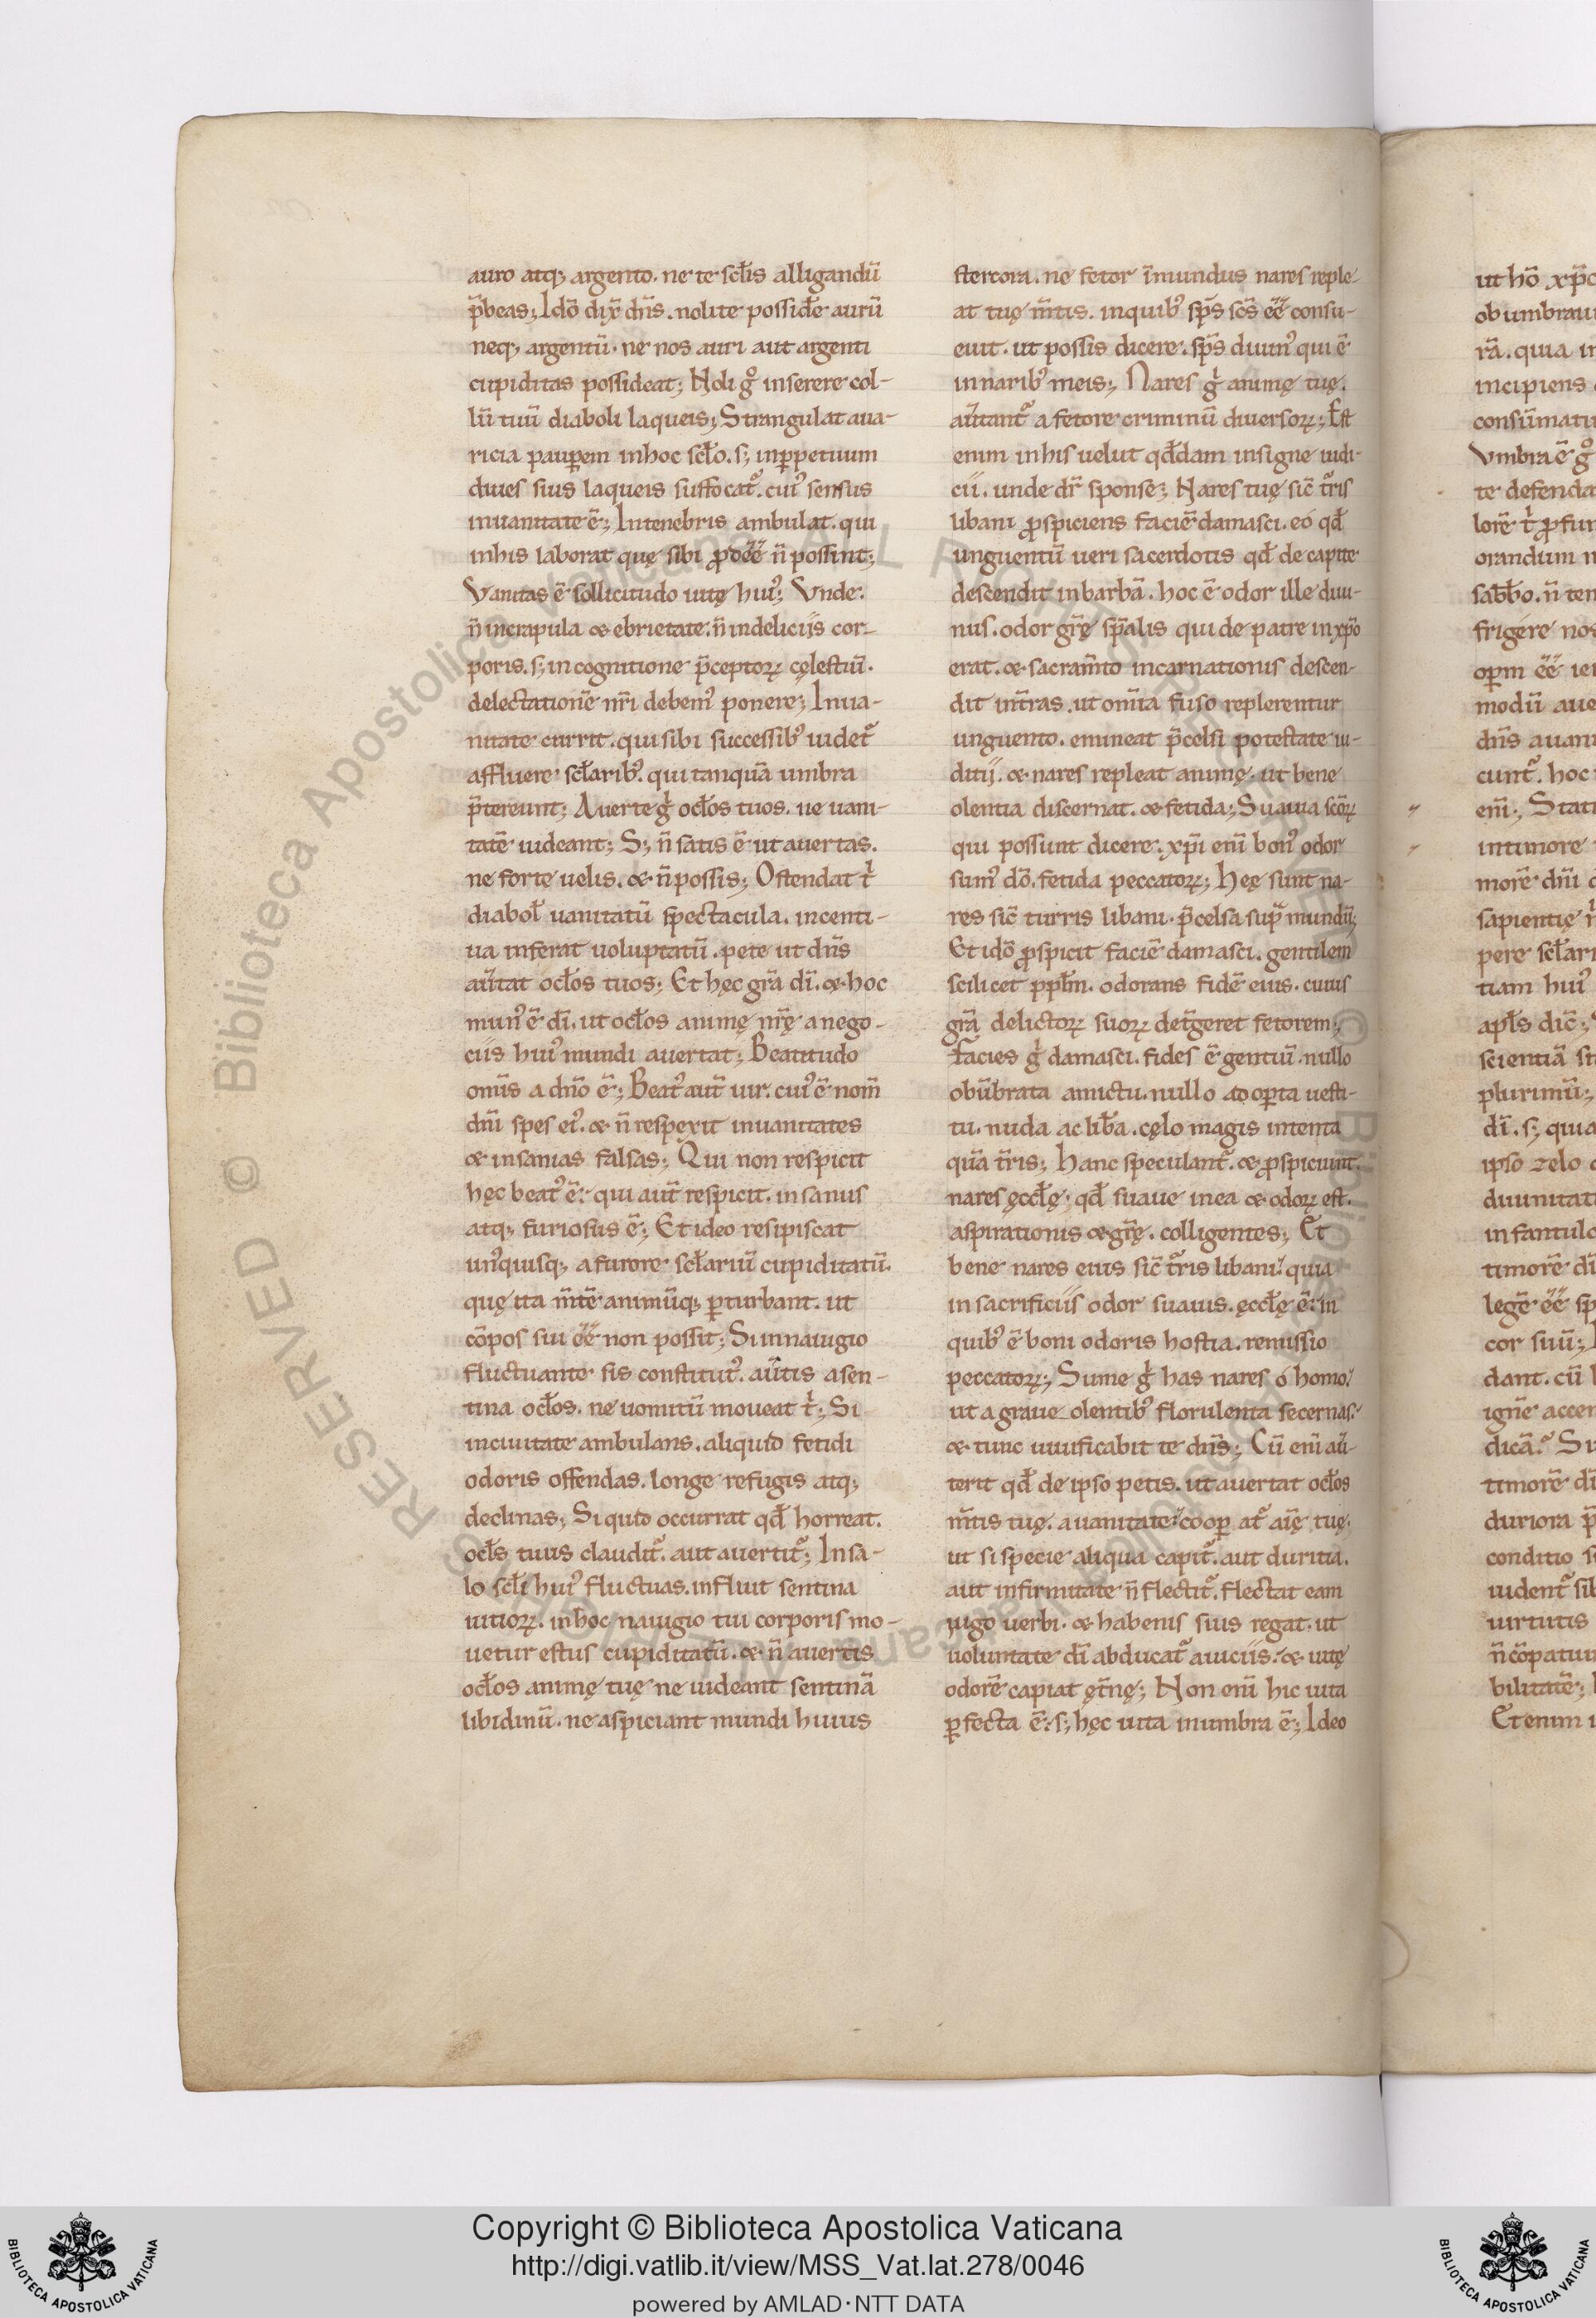 auro atq; argento. ne te scl̄is alligandū
p̄beas; Idō dix̄ dn̄s. nolite possidē aurū
neq; argentū. ne nos auri aut argenti
cupiditas possideat; Noli gͦ inserere col-
lū tuū diaboli laqueis; Strangulat aua-
ricia paupem inhoc scl̄o. s; inppetuum
diues suis laqueis suffocat᷑. cui᾽ sensus
inuanitate ē; Intenebris ambulat. qui
inhis laborat quę sibi ꝓdēē n̄ possint;
Vanitas ē sollicitudo uitę hui᾽; Vnde.
n̄ incrapula & ebrietate. n̄ indeliciis cor-
poris. s; in cognitione p̄ceptoꝝ cęlestiū.
delectationē nr̄i debem᾽ ponere; Inua-
nitate currit. qui sibi successib᾽ uidet᷑
affluere scl̄arib᾽. qui tanquā umbra
p̄tereunt; Auerte gͥ ocl̄os tuos. ne uani-
tatē uideant; S; n̄ satis ē ut auertas.
ne forte uelis. & n̄ possis; Ostendat tͥ
diabol̄ uanitatū spectacula. incenti-
ua inferat uoluptatū. pete ut dn̄s
aūtat ocl̄os tuos; Et hęc gr̄a dī. & hoc
mun᾽ ē dī. ut ocl̄os animę nr̄ę a nego-
ciis hui᾽ mundi auertat; Beatitudo
omīs a dn̄o ē; Beat᾽ aut̄ uir. cui᾽ ē nom̄
dn̄i spes ei᾽. & n̄ respexit inuanitates
& insanias falsas; Qui non respicit
hęc beat᾽ ē: qui aut̄ respicit. insanus
atq; furiosus ē; Et ideo resipiscat
un᾽quisq; a furore scl̄ariū cupiditatū.
quę ita m̄tē animūq; ꝑturbant. ut
cōpos sui ēē non possit; Si innauigio
fluctuante sis constitut᾽. aūtis a sen-
tina ocl̄os. ne uomitū moueat tͥ; Si
inciuitate ambulans. aliquid fetidi
odoris offendas. longe refugis atq;
declinas; Si quid occurrat qd̄ horreat.
ocl̄s tuus claudit᷑. aut auertit᷑; Insa-
lo scl̄i hui᾽ fluctuas. influit sentina
uitioꝝ. inhoc nauigio tui corporis mo-
uetur estus cupiditatū. & n̄ auertis
ocl̄os animę tuę ne uideant sentinā
libidinū. ne aspiciant mundi huius
stercora. ne fetor īmundus nares reple-
at tuę m̄tis. inquib᾽ sp̄s sc̄s ēē consu-
euit. ut possis dicere. sp̄s diuin᾽ qui ē
innarib᾽ meis; Nares gͥ animę tuę.
aūtant᷑ a fetore criminū diuersoꝝ; Est
enim inhis uelut qd̄dam insigne iudi-
cii. unde dr̄ sponsę; Nares tuę sic̄ t᷑ris
libani ꝓspiciens faciē damasci. eó qd̄
unguentū ueri sacerdotis qd̄ de capite
descendit inbarbā. hoc ē odor ille diui-
nus. odor gr̄ę sp̄alis qui de patre inxp̄o
erat. & sacram̄to incarnationis descen-
dit int̄ras. ut om̄ia fuso replerentur
unguento. emineat p̄celsi potestate iu-
ditii. & nares repleat animę. ut bene
olentia discernat. & fetida; Suauia sc̄oꝝ
qui possunt dicere. xp̄i enī bon᾽ odor
sum᾽ dō. fetida peccatoꝝ; Hęę sunt na-
res sic̄ turris libani. p̄celsa sup̄ mundū;
Et idō ꝓspicit faciē damasci. gentilem
scilicet ppl̄m. odorans fidē eius. cuius
gr̄a delictoꝝ suoꝝ det̄geret fetorem;
Facies gͥ damasci. fides ē gentiū. nullo
obūbrata amictu. nullo adoꝑta uesti-
tu. nuda ac lib̄a. cęlo magis intenta
quā t̄ris; Hanc speculant᷑. & ꝓspiciunt.
nares ęccl̄ę. qd̄ suaue inea & odoꝝ est.
aspirationis & gr̄ę. colligentes; Et
bene nares eius sic̄ t᷑ris libani: quia
in sacrificiis odor suauis. ęccl̄ę ē: in
quib᾽ ē boni odoris hostia. remissio
peccatoꝝ; Sume gͥ has nares ó homo:
ut a graue olentib᾽ florulenta secernas:
& tunc uiuificabit te dn̄s; Cū enī aū-
terit qd̄ de ipso petis. ut auertat ocl̄os
m̄tis tuę. a uanitate: cooꝑ at᷑ aīę tuę.
ut si specie aliqua capit᷑. aut duritia.
aut infirmitate n̄ flectit᷑. flectat eam
iugo uerbi. & habenis suis regat. ut
uoluntate dī abducat᷑ auiciis: & uitę
odorē capiat ęt̄nę; Non enī hic uita
ꝑfecta ē: s; hęc uita inumbra ē; Ideo
Copyright © Biblioteca Apostolica Vaticana
http://digi.vatlib.it/view/MSS_Vat.lat.278/0046
powered by AMLAD·NTT DATA